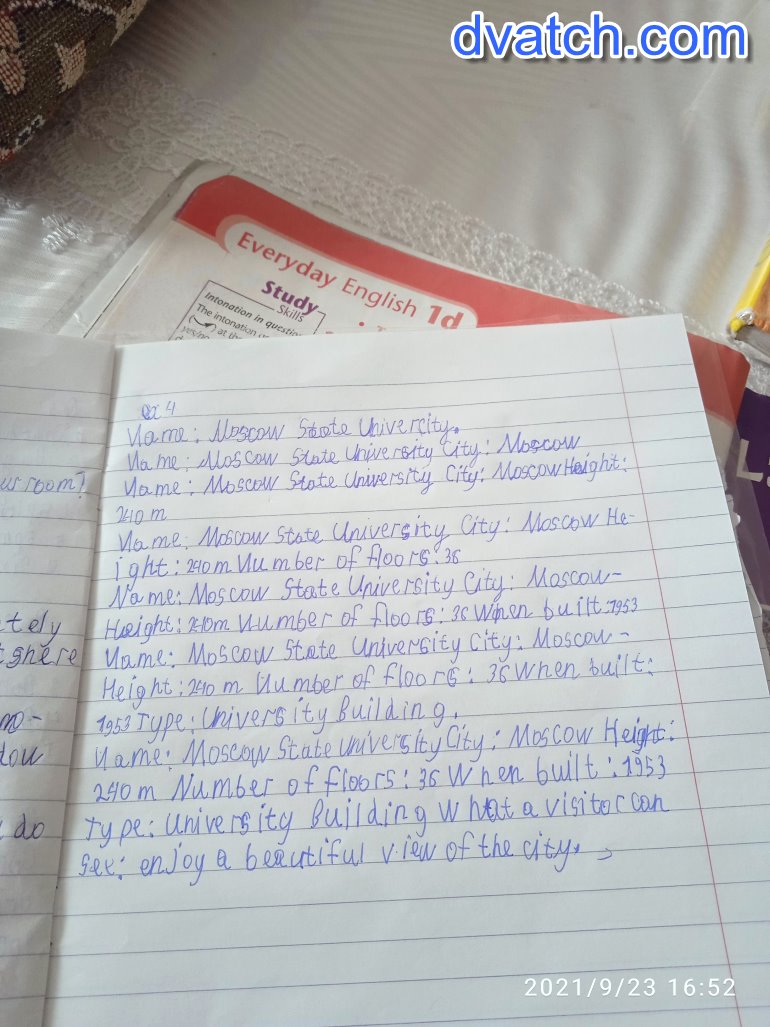 dvatch.com
Everyday English 1d
Study
Skills
Intonation in questio
The intonation
yes/no
at the
ex 4
Name: Moscow State Univercity.
Name: Moscow State University City: Moscow
Name: Moscow State University City: Moscow Height:
240 m
Name: Moscow State University City: Moscow He-
ight: 240 m Number of floors: 36
Name: Moscow State University City: Moscow-
Height: 240m Number of floors: 36 When built: 1953
Name: Moscow State University City: Moscow-
Height: 240 m Number of floors: 36 When built:
1953 Type: University Building.
Name: Moscow State University City: Moscow Height:
240 m Number of floors: 36 When built: 1953
Type: University Building What a visitor can
see: enjoy a beautiful view of the city.
us room?
tely
there
mo-
dow
do
2021/9/23 16:52